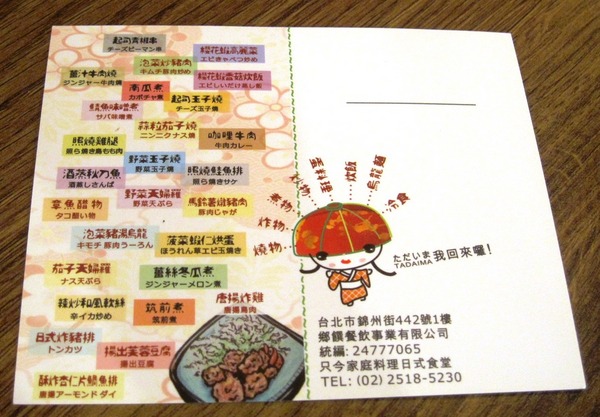 起司青椒串
チーズピーマン煮
櫻花蝦高麗菜
エビきゃべつ炒め
泡菜炒豬肉
キムチ豚肉炒め
櫻花蝦香菇炊飯
エビしいたけ蒸し飯
薑汁牛肉燒
ジンジャー牛肉燒
南瓜煮
カボチャ煮
起司玉子燒
チーズ玉子燒
鯖魚味噌煮
サバ味噌煮
蒜粒茄子燒
ニンニクナス燒
咖哩牛肉
牛肉カレー
照燒雞腿
照ら燒き鳥もも肉
野菜玉子燒
野菜玉子燒
酒蒸秋刀魚
酒蒸しさんぱ
照燒鮭魚排
照ら燒きサケ
野菜天婦羅
野菜天ぷら
章魚醋物
タコ酸い物
馬鈴薯燉豬肉
豚肉じゃが
泡菜豬湯烏龍
キモチ 豚肉うーろん
菠菜蝦仁烘蛋
ほうれん草エビ玉燒き
茄子天婦羅
ナス天ぷら
薑絲冬瓜煮
ジンジャーメロン煮
辣炒和風軟絲
辛イカ炒め
筑前煮
筑前煮
唐揚炸雞
唐揚鳥肉
日式炸豬排
トンカツ
揚出芙蓉豆腐
揚出豆腐
酥炸杏仁片鱈魚排
唐揚アーモンド ダイ
燒物
炸物
煮物
炊飯
烏龍麵
冷食
ただいま 我回來囉!
TADAIMA
台北市錦州街442號1樓
鄉饌餐飲事業有限公司
統編: 24777065
只今家庭料理日式食堂
TEL: (02) 2518-5230